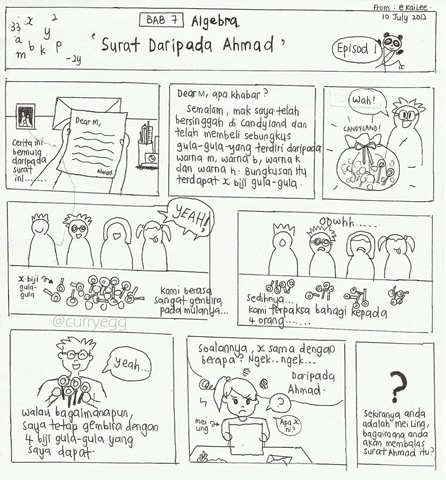 From : ekailee.
10 July 2012
BAB 7
Algebra
33 x 2
a y
m b k p -2y
'Surat Daripada Ahmad'
Episod 1
Dear M,
Ahmad
Cerita ini
bermula
daripada
surat
ini.......
Dear M, apa khabar?
Semalam, mak saya telah
bersinggah di Candyland dan
telah membeli sebungkus
gula-gula yang terdiri daripada
warna m, warna b, warna k
dan warna h. Bungkusan itu
terdapat x biji gula-gula.
Wah!
CANDYLAND!
YEAHA!
x biji
gula-
gula
kami berasa
sangat gembira
pada mulanya...
@curryegg
OOWHH.....
Sedihnya...
kami terpaksa bahagi kepada
4 orang.......
Yeah...
walau bagaimanapun,
saya tetap gembira dengan
4 biji gula-gula yang
saya dapat.
Soalannya, x sama dengan
berapa? Ngek..ngek...
Daripada
Ahmad.
mei
Ling
Apa x
ni?
?
Sekiranya anda
adalah mei Ling,
bagaimana anda
akan membalas
surat Ahmad itu?